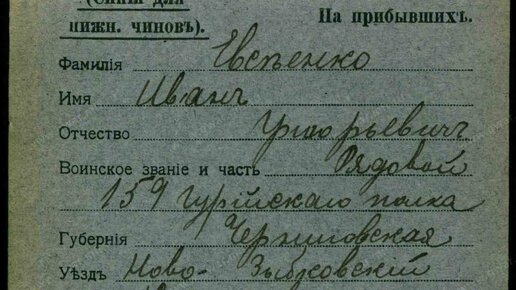 (Синій для
нижн. чиновъ).
На прибывшихъ.
Фамилія Евсѣенко
Имя Иванъ
Отчество Григорьевичъ
Воинское званіе и часть Рядовой
159 Гурійскаго полка
Губернія Черниговская
Уѣздъ Ново-Зыбковскій